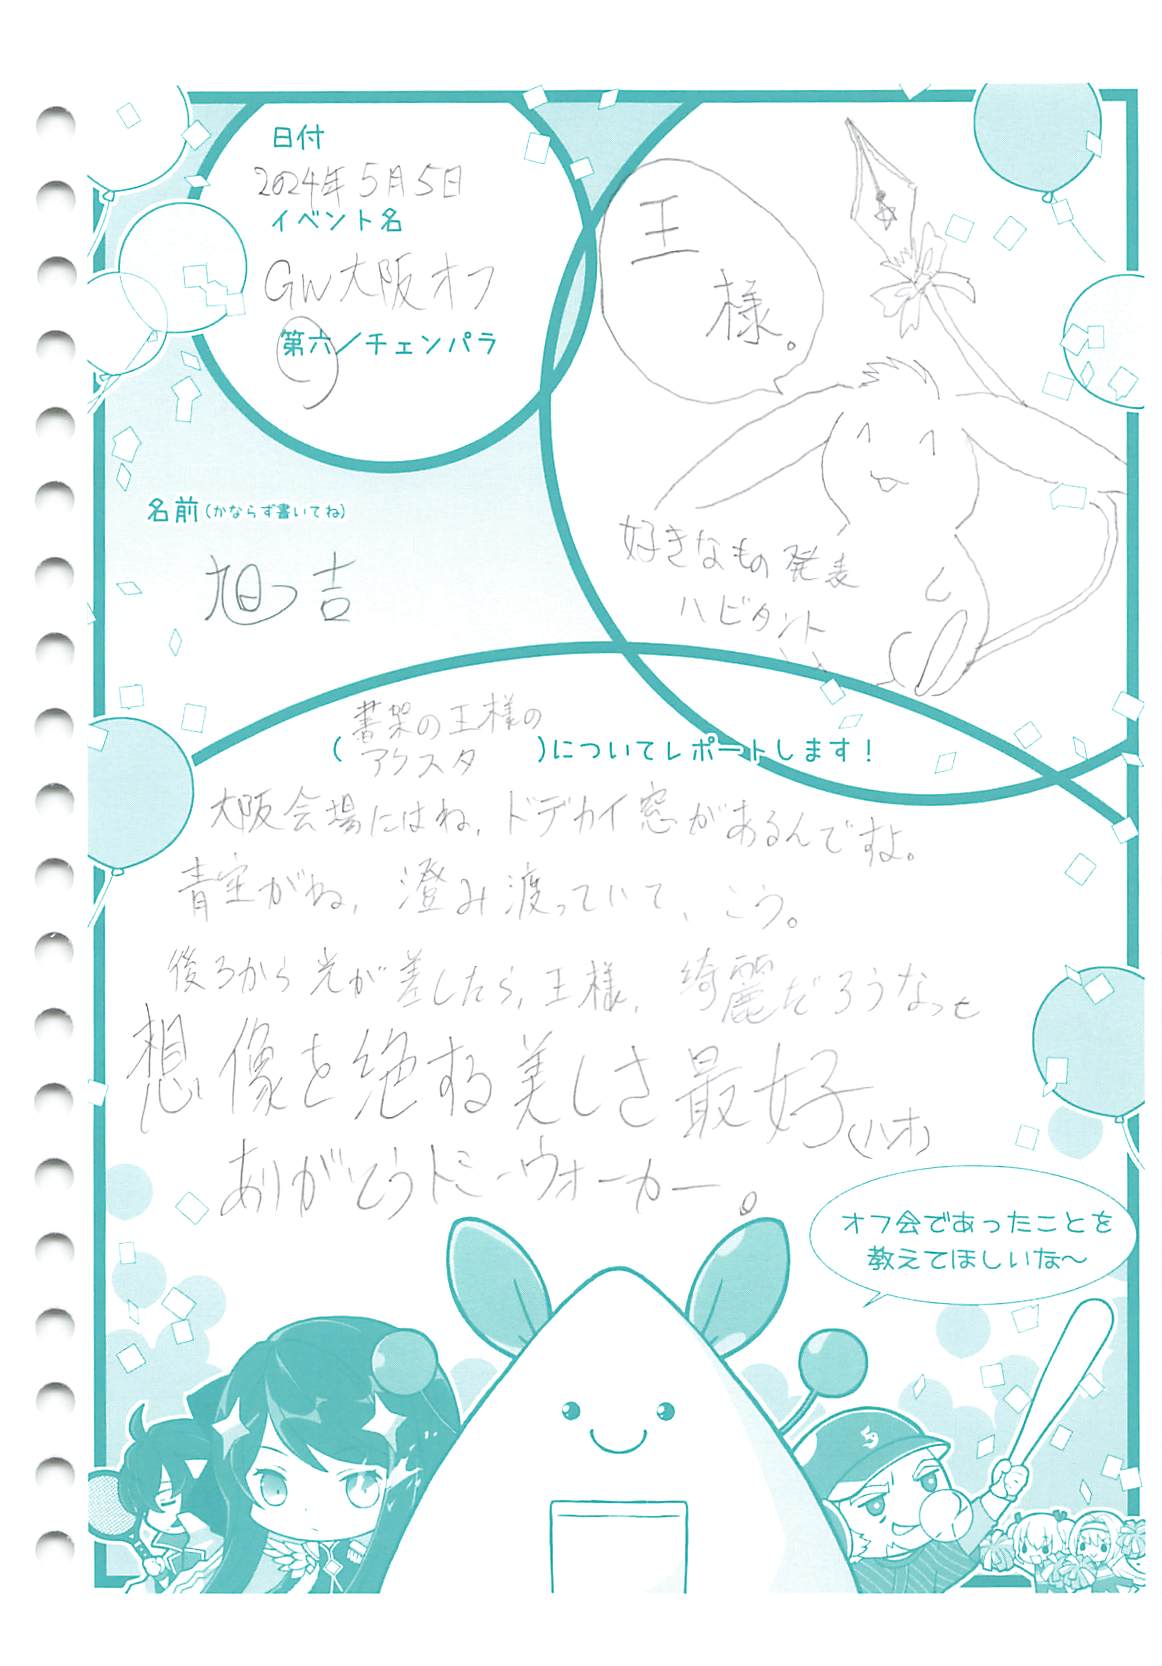 日付
2024年5月5日
イベント名
GW大阪オフ
第六／チェンパラ
王
様。
名前(かならず書いてね)
旭吉
好きなもの発表
ハビタント
書架の王様の
アクスタ
(　)についてレポートします！
大阪会場にはね、ドデカイ窓があるんですよ。
青空がね、澄み渡っていて、こう。
後ろから光が差したら、王様、綺麗だろうなっも
想像を絶する美しさ最好(ハオ)
ありがとうトミーウォーカー。
オフ会であったことを
教えてほしいな～